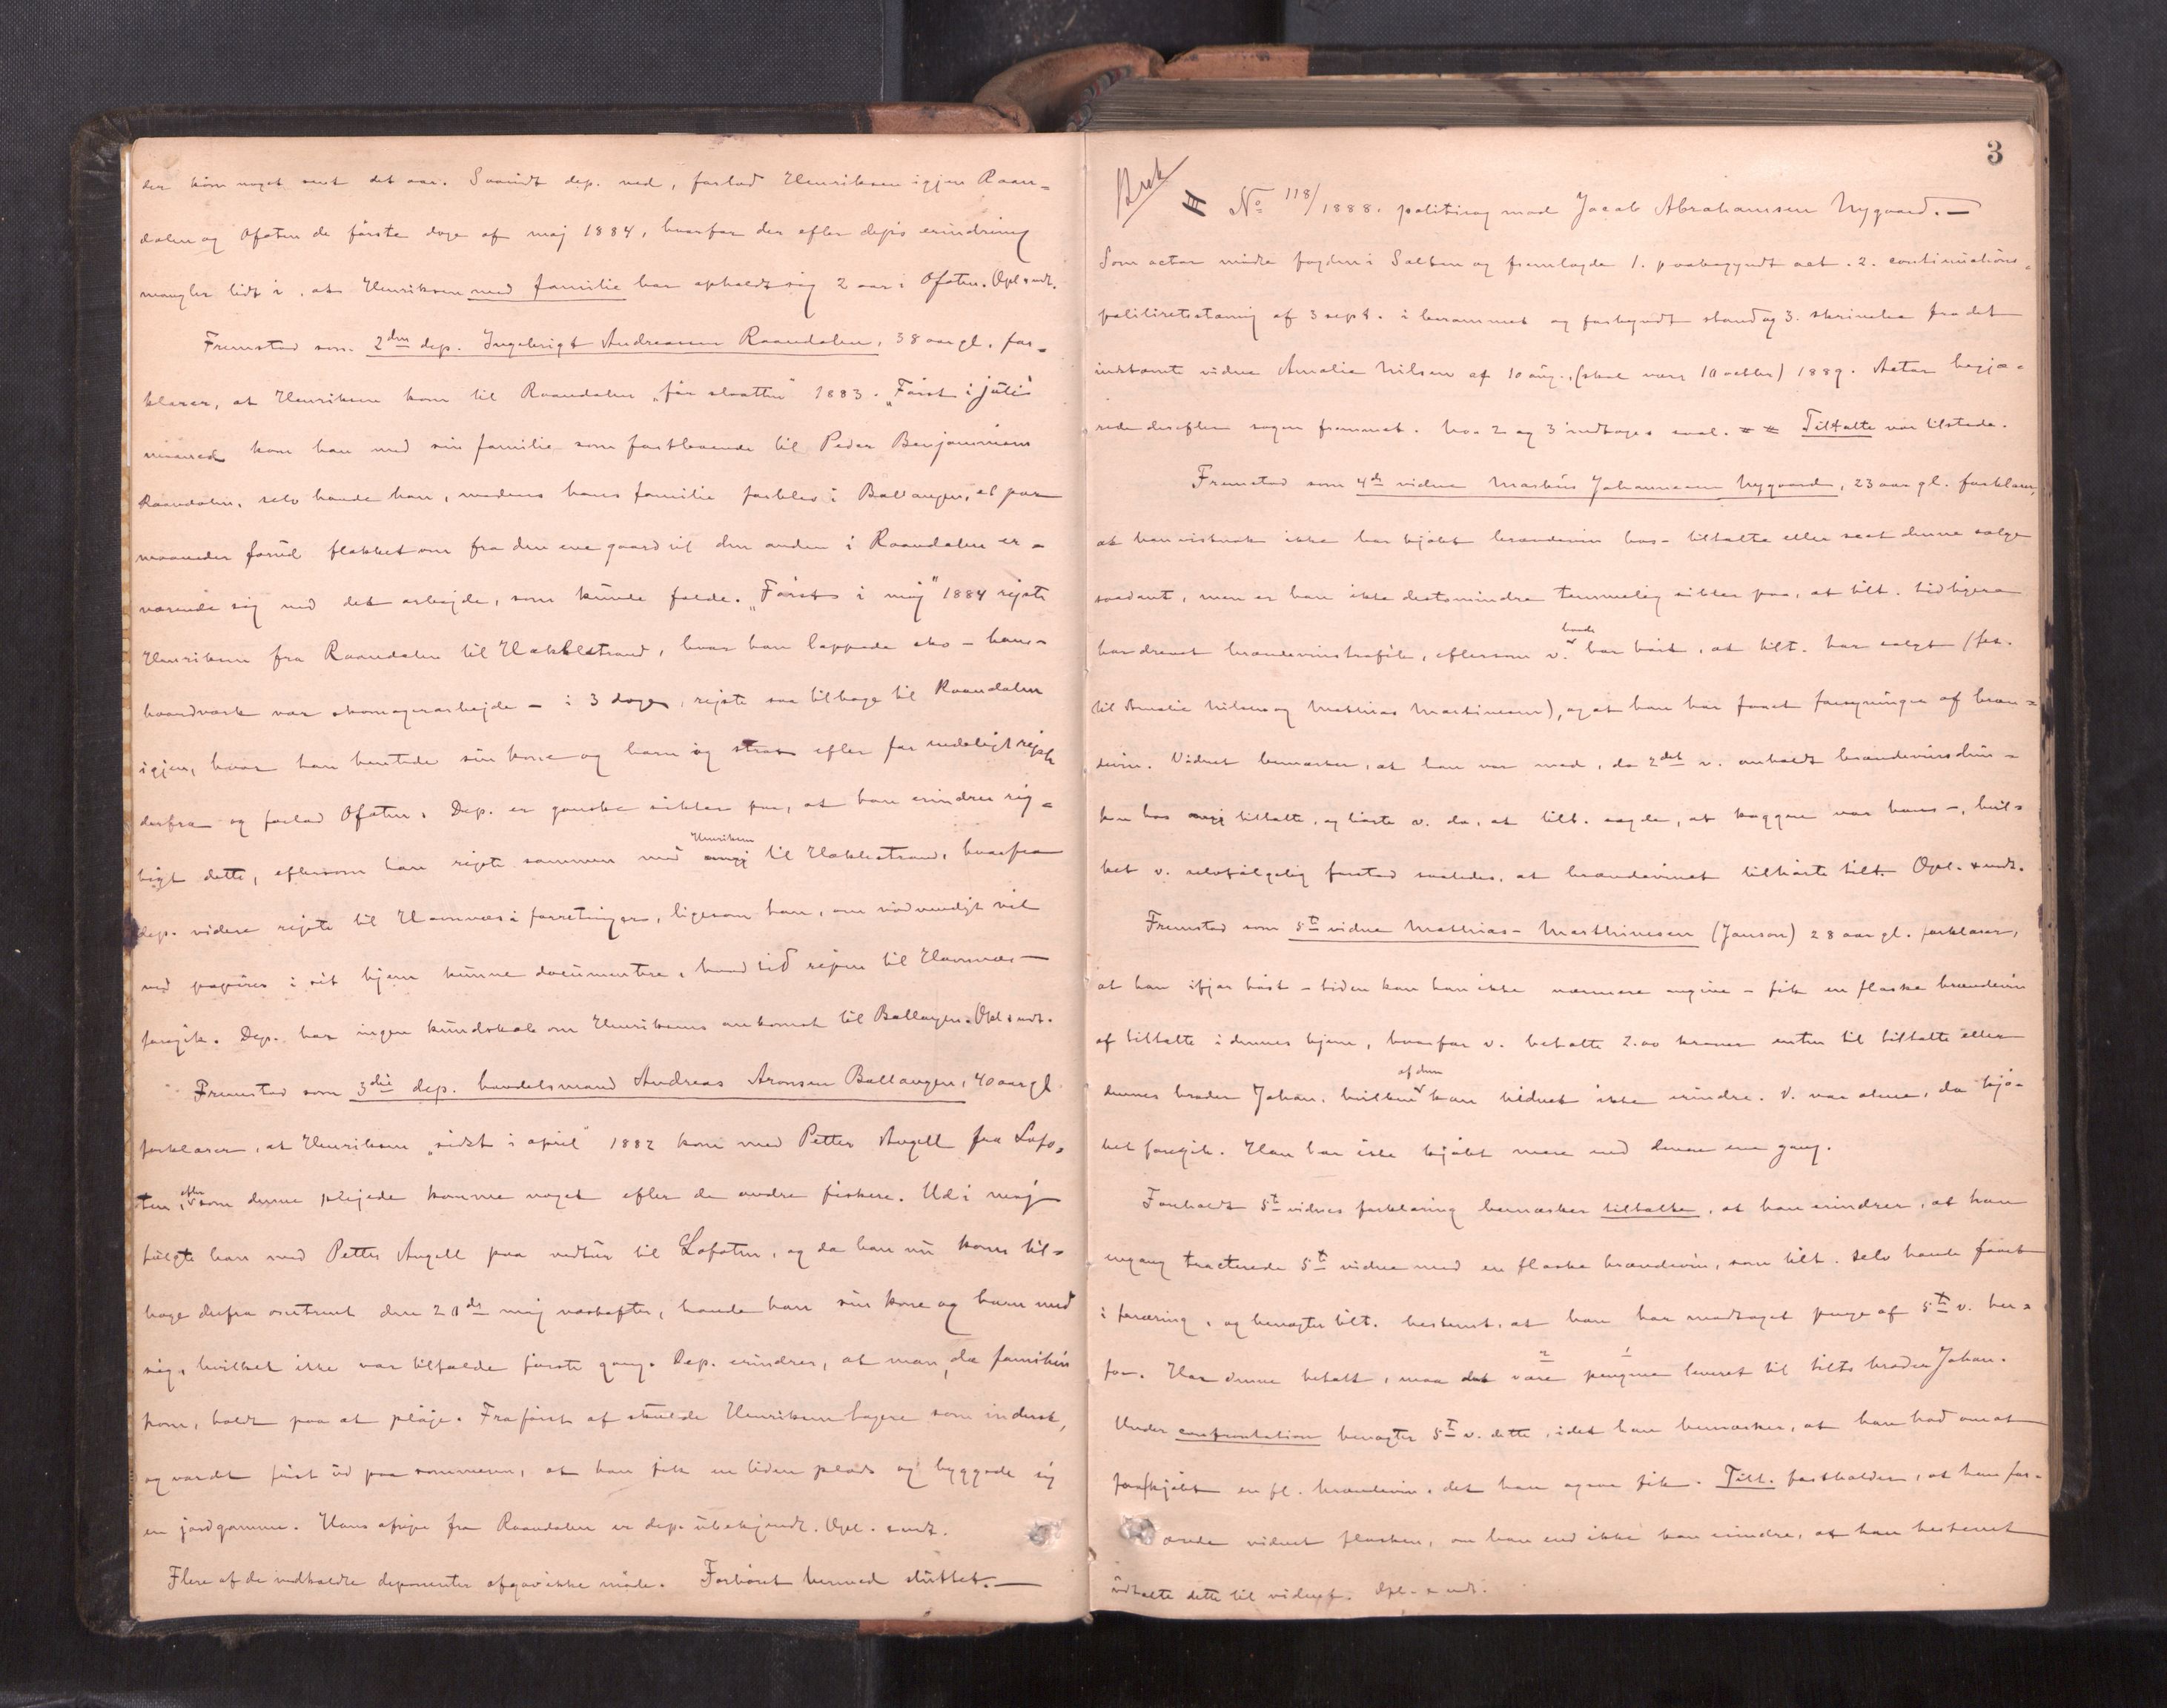 der kom noget sent det aar. Saavidt dep. ved, forlod Henriksen igjen Raan-
dalen og Ofoten de første dage af maj 1884, hvorfor der efter deps erindring
mangler lidt i, at Henriksen med familie har opholdt sig 2 aar i Ofoten. Opl. & vedt.
Fremstod som 2den dep. Ingebrigt Andreassen Raandalen, 38 aar gl., for-
klarer, at Henriksen kom til Raandalen „før slaatten" 1883. „Først i juli"
maaned kom han med sin familie som fastboende til Peder Benjaminsen
Raandalen, selv havde han, medens hans familie forblev i Ballangen, et par
maaneder forud flakket om fra den ene gaard til den anden i Raandalen er-
nærende sig ved det arbejde, som kunde falde. „Først i maj" 1884 rejste
Henriksen fra Raandalen til Hækkelstrand, hvor han lappede sko – hans
haandværk var skomagerarbejde – i 3 dage, rejste saa tilbage til Raandalen
igjen, hvor han hentede sin kone og barn og strax efter for endeligt rejste
derfra og forlod Ofoten. Dep. er ganske sikker paa, at han erindrer rig-
tigt dette, eftersom han rejste sammen med Henriksen til Hækkelstrand, hvorfra
dep. videre rejste til Havnnæs i forretninger, ligesom han, om nødvendigt vil
ved papirer i sit hjem kunne documentere, hvad tid rejsen til Havnnæs
foregik. Dep. har ingen kundskab om Henriksens ankomst til Ballangen. Opl. & vedt.
Fremstod som 3die dep. handelsmand Andreas Aronsen Ballangen, 40 aar gl.
forklarer, at Henriksen „sidst i april" 1882 kom med Petter Angell fra Lofo-
ten, eftersom denne plejede komme noget efter de andre fiskere. Ud i maj
fulgte han med Petter Angell paa vedtur til Lofoten, og da han nu kom til-
bage derfra omtrent den 20de maj næstefter, havde han sin kone og barn med
sig, hvilket ikke var tilfælde første gang. Dep. erindrer, at man, da familien
kom, holdt paa at pløje. Fra først af skulde Henriksen logere som inderst,
og var det først ud paa sommeren, at han fik en liden plads og byggede sig
en jordgamme. Hans afrejse fra Raandalen er dep. ubekjendt. Opl. & vedt.
Flere af de indkaldte deponenter afgav ikke møde. Forhøret hermed sluttet.
3
No 118/1888. politisag mod Jacob Abrahamsen Nygaard.
Som actor mødte fogden i Salten og fremlagde 1. paabegyndt act. 2. continuations-
politiretsstævning af 3 sept. i berammet og forkyndt stand og 3. skrivelse fra det
indstævnte vidne Amalie Nilsen af 10 aug. (skal være 10 octbr) 1889. Actor begjæ-
rede derefter sagen fremmet. No. 2 og 3 indtages saal. Tiltalte var tilstede.
Fremstod som 4de vidne Markus Johannesen Nygaard, 23 aar gl. forklarer,
at han vistnok ikke har kjøbt brændevin hos tiltalte eller seet denne sælge
saadant, men er han ikke destomindre temmelig sikker paa, at tilt. tidligere
har drevet brændevinstrafik, eftersom v. har hørt, at tilt. har solgt (fex.
til Amalie Nilsen og Mathias Martinesen), og at han har faaet forsyninger af bræn-
devin. Vidnet bemærker, at han var med, da 2det v. anholdt brændevinsdun-
ken hos tiltalte, og hørte v. da, at tilt. sagde, at kaggen var hans, hvil-
ket v. selvfølgelig forstod saaledes, at brændevinet tilhørte tilt. Opl. & vedt.
Fremstod som 5te vidne Mathias Marthinesen (Janson) 28 aar gl. forklarer,
at han ifjor høst – tiden kan han ikke nærmere angive – fik en flaske brændevin
af tiltalte i dennes hjem, hvorfor v. betalte 2.00 kroner enten til tiltalte eller
dennes broder Johan, hvilken af dem kan vidnet ikke erindre. V. var alene, da kjø-
bet foregik. Han har ikke kjøbt mere end denne ene gang.
Foreholdt 5te vidnes forklaring bemærker tiltalte, at han erindrer, at han
engang tracterede 5te vidne med en flaske brændevin, som tilt. selv havde faaet
i foræring, og benægter tilt. bestemt, at han har modtaget penge af 5te v. her-
for. Har denne betalt, maa det være pengene leveret til tilts broder Johan.
Under confrontation benægter 5te v. dette, idet han bemærker, at han bad om at
faa kjøbt en fl. brændevin, det han ogsaa fik. Tilt. fastholder, at han for-
ærede vidnet flasken, om han end ikke kan erindre, at han bestemt
udtalte dette til vidnet. Opl. & vedt.